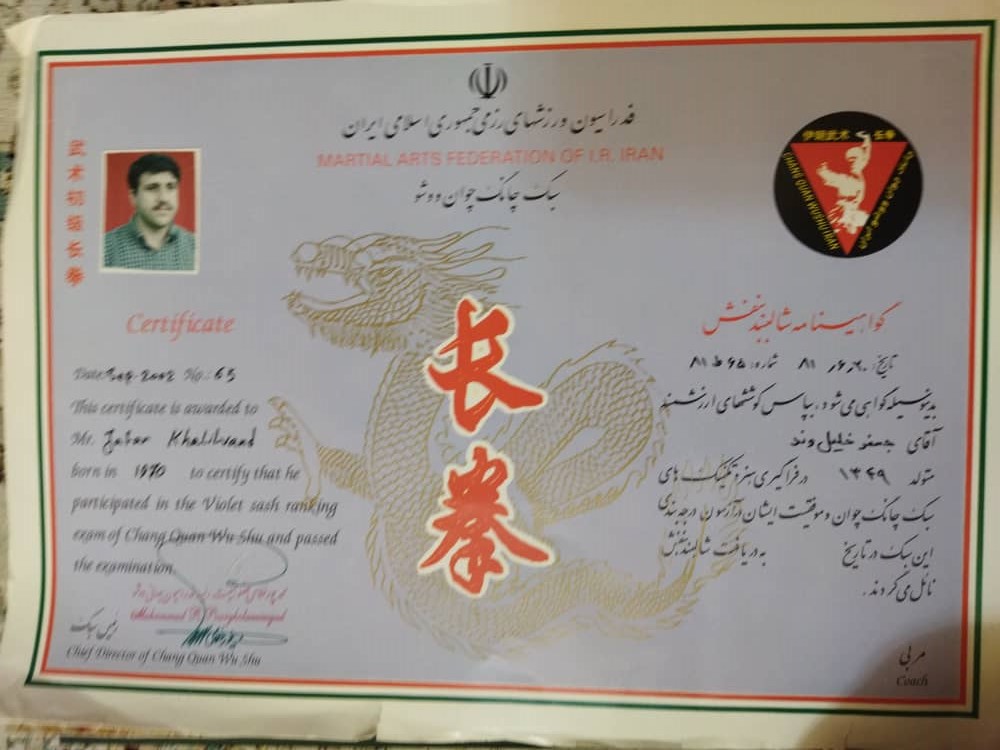 فدراسیون ورزشهای رزمی جمهوری اسلامی ایران
MARTIAL ARTS FEDERATION OF I.R. IRAN
سبک چانگ چوان ووشو
武术初级长拳
伊朗武术 长拳
CHANG QUAN WUSHU IRAN
长拳
Certificate
Date: Sep-2002 No.: 65
This certificate is awarded to
Mr. Jafar Khalilvand
born in 1970 to certify that he
participated in the Violet sash ranking
exam of Chang Quan Wu Shu and passed
the examination.
رئیس سبک
Chief Director of Chang Quan Wu Shu
گواهینامه شالبند بنفش
تاریخ: ۸۱/۶/۲۰ شماره: ۶۵ ط ۸۱
بدینوسیله گواهی می شود، بپاس کوششهای ارزشمند
آقای جعفر خلیل وند
متولد ۱۳۴۹ در فراگیری هنر و تکنیک های
سبک چانگ چوان و موفقیت ایشان در آزمون درجه بندی
این سبک در تاریخ به دریافت شالبند بنفش
نائل می گردند.
مربی
Coach